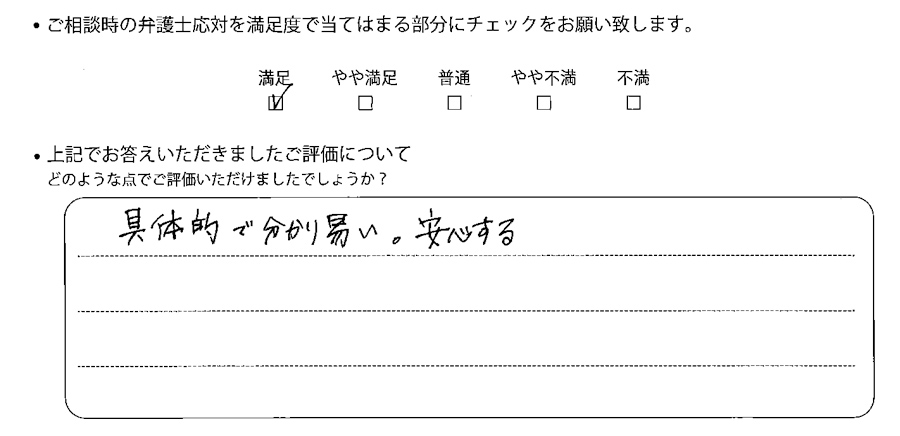 ・ご相談時の弁護士応対を満足度で当てはまる部分にチェックをお願い致します。
満足 やや満足 普通 やや不満 不満
☑ □ □ □ □
・上記でお答えいただきましたご評価について
どのような点でご評価いただけましたでしょうか？
具体的で分かり易い。安心する